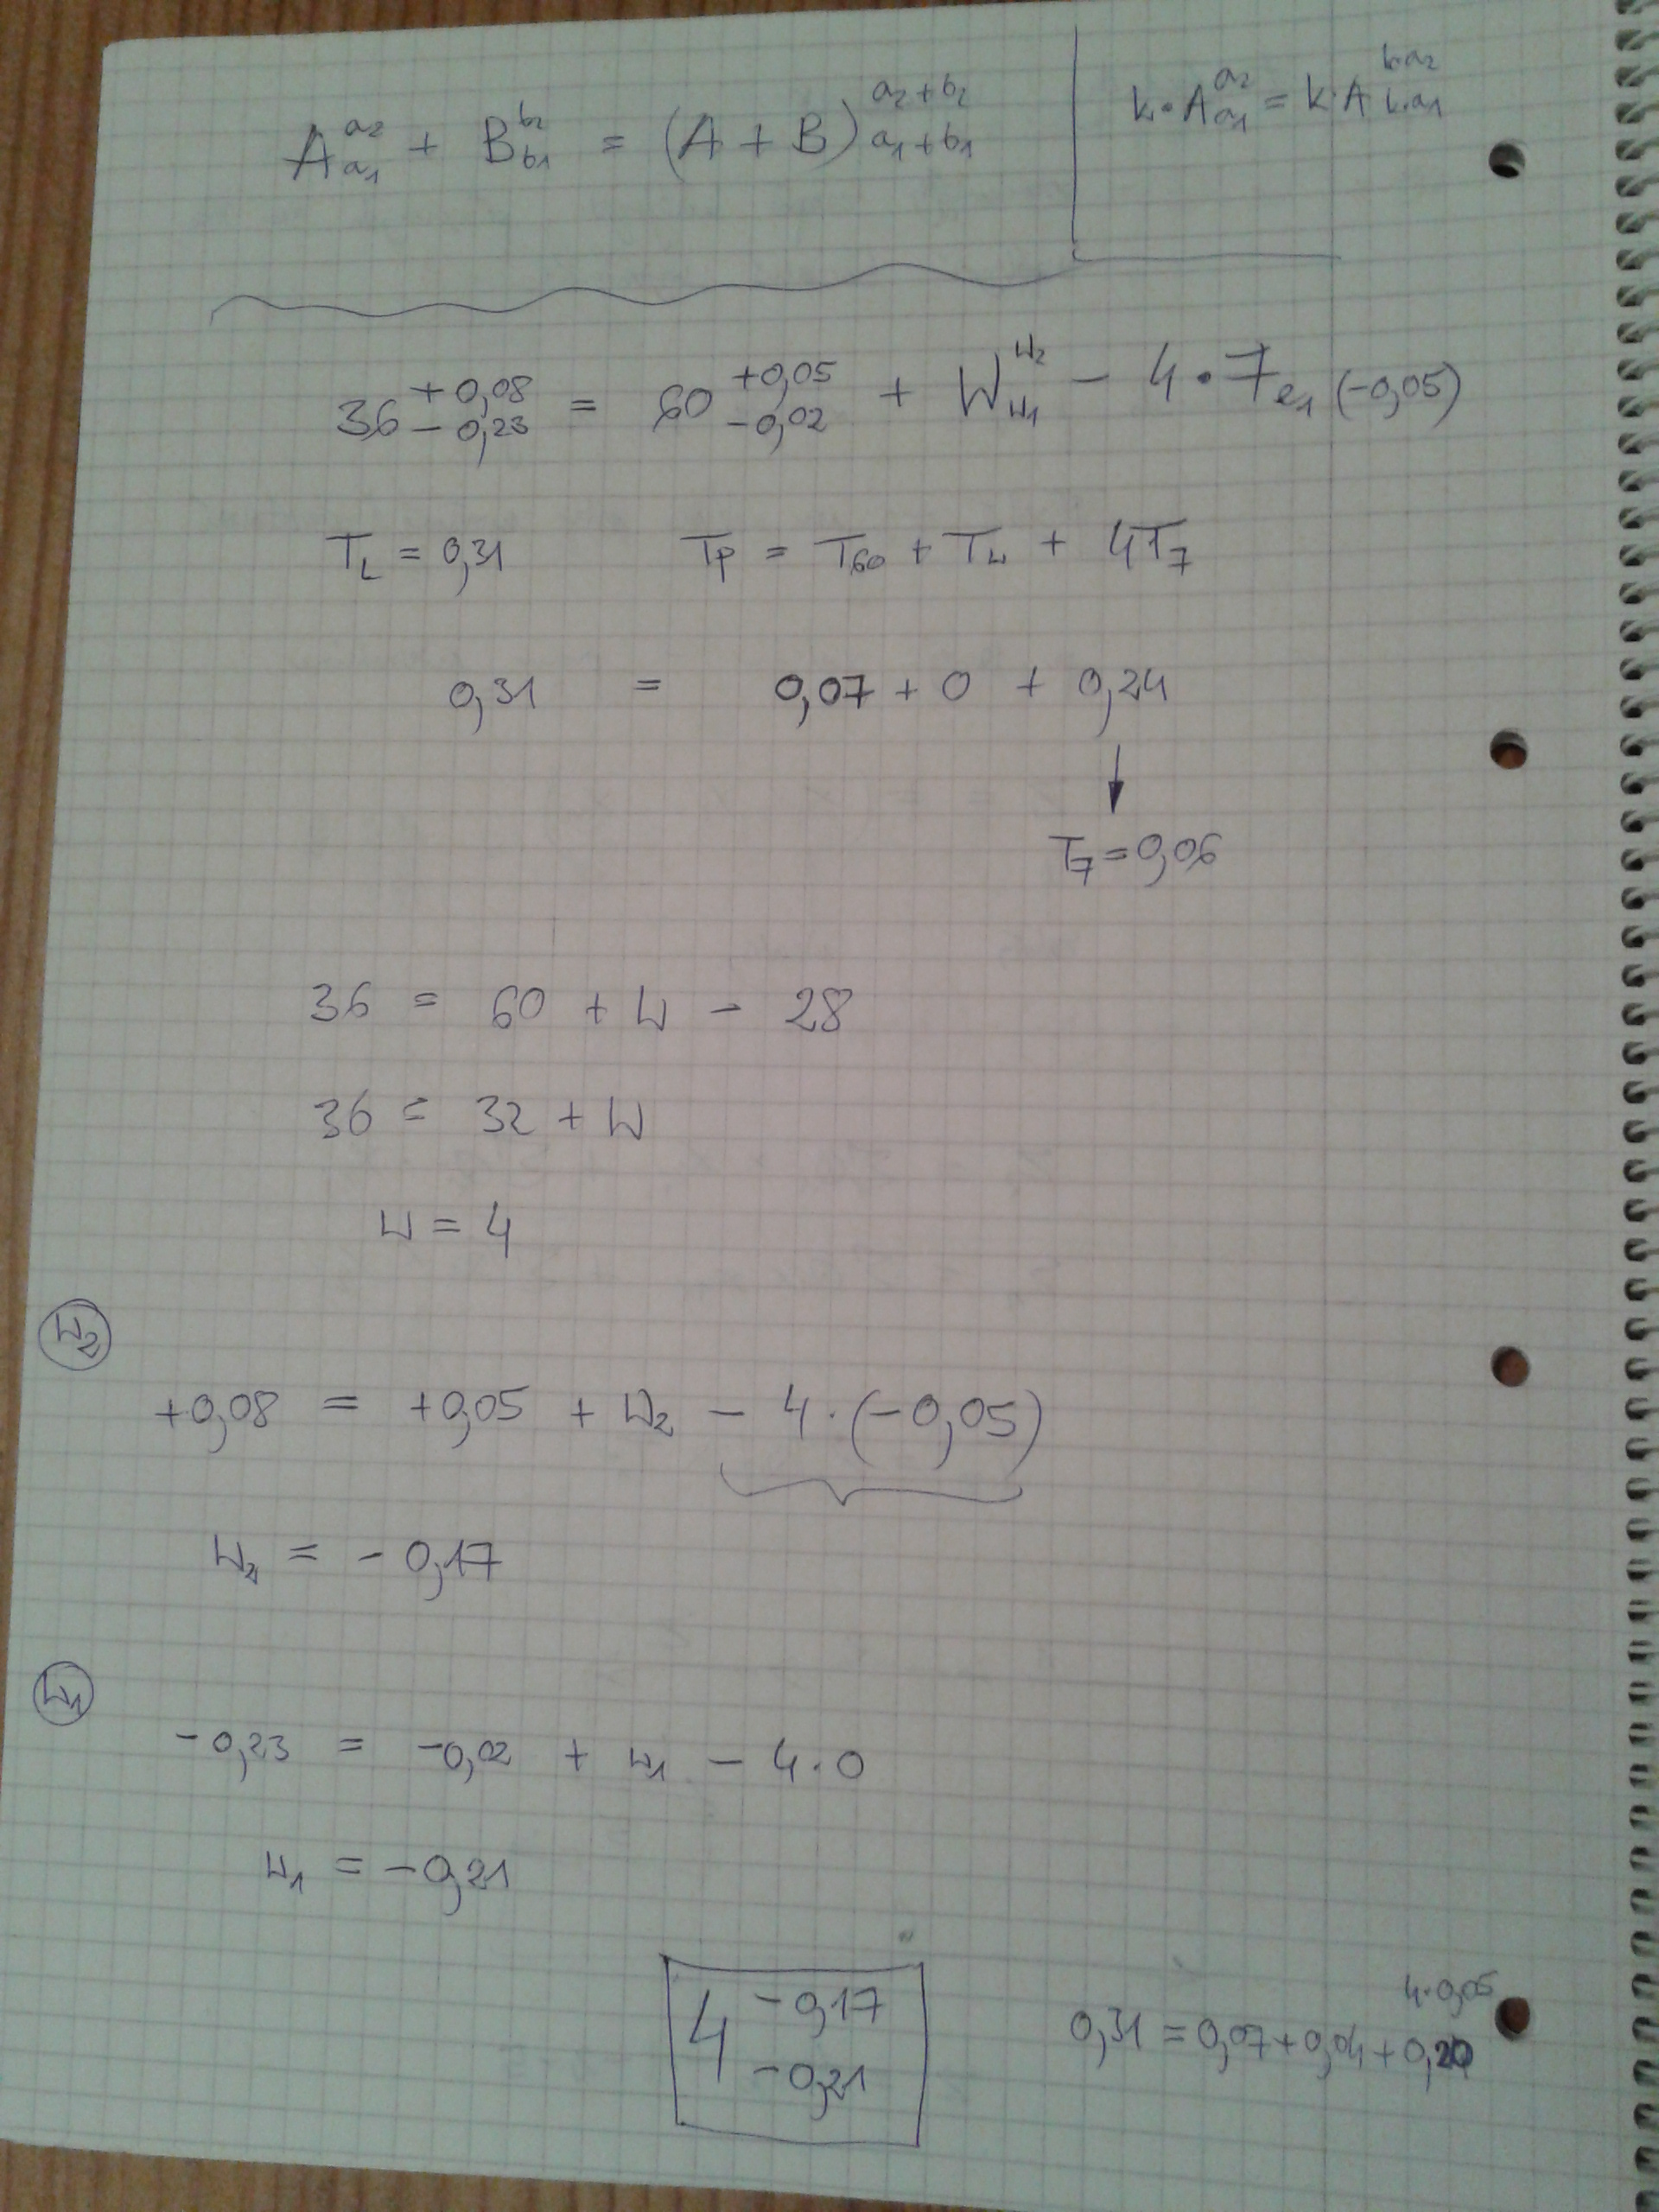 A a₂ a₁ + B b₂ b₁ = (A + B) a₂+b₂ a₁+b₁
k·A a₂ a₁ = k·A k·a₂ k·a₁
36 +0,08 −0,23 = 60 +0,05 −0,02 + W w₂ w₁ − 4·7 e₁ (−0,05)
T_L = 0,31 T_P = T₆₀ + T_W + 4T₇
0,31 = 0,07 + 0 + 0,24
↓
T₇ = 0,06
36 = 60 + W − 28
36 = 32 + W
W = 4
W₂
+0,08 = +0,05 + W₂ − 4·(−0,05)
W₂ = −0,17
W₁
−0,23 = −0,02 + W₁ − 4·0
W₁ = −0,21
4 −0,17 −0,21
4·0,05
0,31 = 0,07 + 0,04 + 0,20